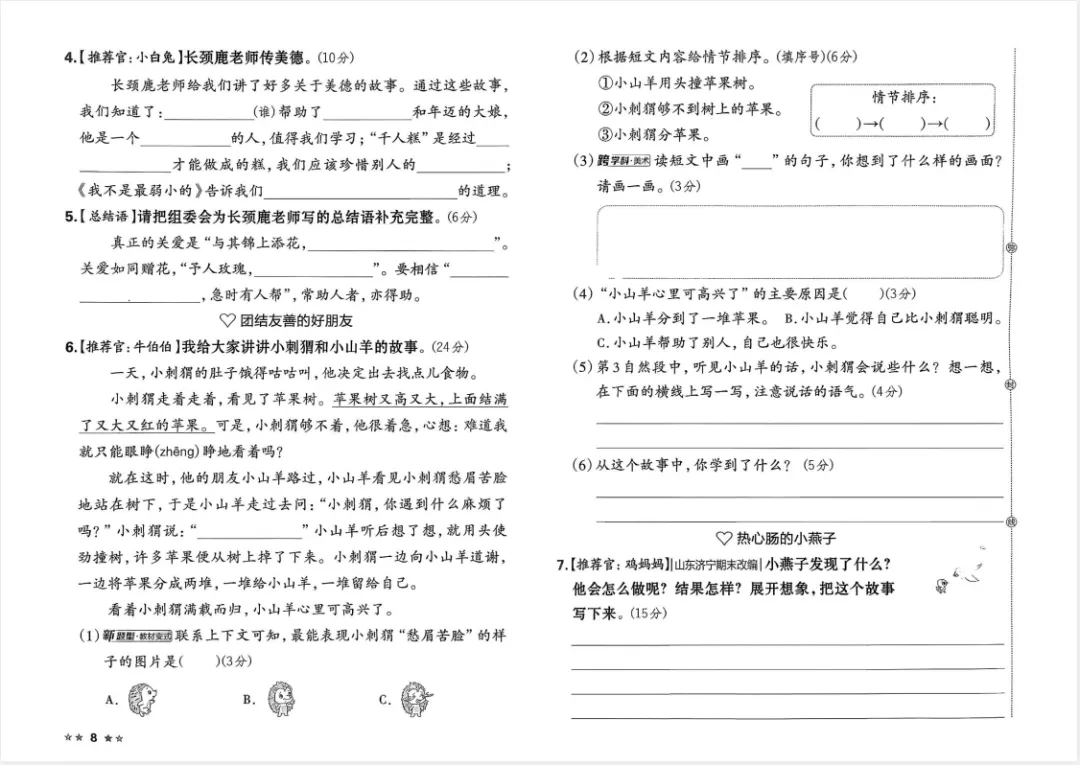 4.【推荐官:小白兔】长颈鹿老师传美德。(10分)
长颈鹿老师给我们讲了好多关于美德的故事。通过这些故事,
我们知道了:____________(谁)帮助了____________和年迈的大娘,
他是一个____________的人,值得我们学习;“千人糕”是经过____
____________才能做成的糕,我们应该珍惜别人的____________;
《我不是最弱小的》告诉我们________________________的道理。
5.【总结语】请把组委会为长颈鹿老师写的总结语补充完整。(6分)
真正的关爱是“与其锦上添花,________________________”。
关爱如同赠花,“予人玫瑰,________________”。要相信“________
________________,急时有人帮”,常助人者,亦得助。
♡ 团结友善的好朋友
6.【推荐官:牛伯伯】我给大家讲讲小刺猬和小山羊的故事。(24分)
一天,小刺猬的肚子饿得咕咕叫,他决定出去找点儿食物。
小刺猬走着走着,看见了苹果树。苹果树又高又大,上面结满
了又大又红的苹果。可是,小刺猬够不着,他很着急,心想:难道我
就只能眼睁(zhēng)睁地看着吗?
就在这时,他的朋友小山羊路过,小山羊看见小刺猬愁眉苦脸
地站在树下,于是小山羊走过去问:“小刺猬,你遇到什么麻烦了
吗?”小刺猬说:“______________”小山羊听后想了想,就用头使
劲撞树,许多苹果便从树上掉了下来。小刺猬一边向小山羊道谢,
一边将苹果分成两堆,一堆给小山羊,一堆留给自己。
看着小刺猬满载而归,小山羊心里可高兴了。
(1)新题型·教材变式 联系上下文可知,最能表现小刺猬“愁眉苦脸”的样
子的图片是(    )(3分)
A. B. C.
☆☆ 8 ★☆
(2)根据短文内容给情节排序。(填序号)(6分)
①小山羊用头撞苹果树。
②小刺猬够不到树上的苹果。
③小刺猬分苹果。
情节排序:
(    )→(    )→(    )
(3)跨学科·美术 读短文中画“____”的句子,你想到了什么样的画面?
请画一画。(3分)
(4)“小山羊心里可高兴了”的主要原因是(    )(3分)
A.小山羊分到了一堆苹果。 B.小山羊觉得自己比小刺猬聪明。
C.小山羊帮助了别人,自己也很快乐。
(5)第3自然段中,听见小山羊的话,小刺猬会说些什么?想一想,
在下面的横线上写一写,注意说话的语气。(4分)
(6)从这个故事中,你学到了什么?(5分)
♡ 热心肠的小燕子
7.【推荐官:鸡妈妈】|山东济宁期末改编|小燕子发现了什么?
他会怎么做呢?结果怎样?展开想象,把这个故事
写下来。(15分)
封